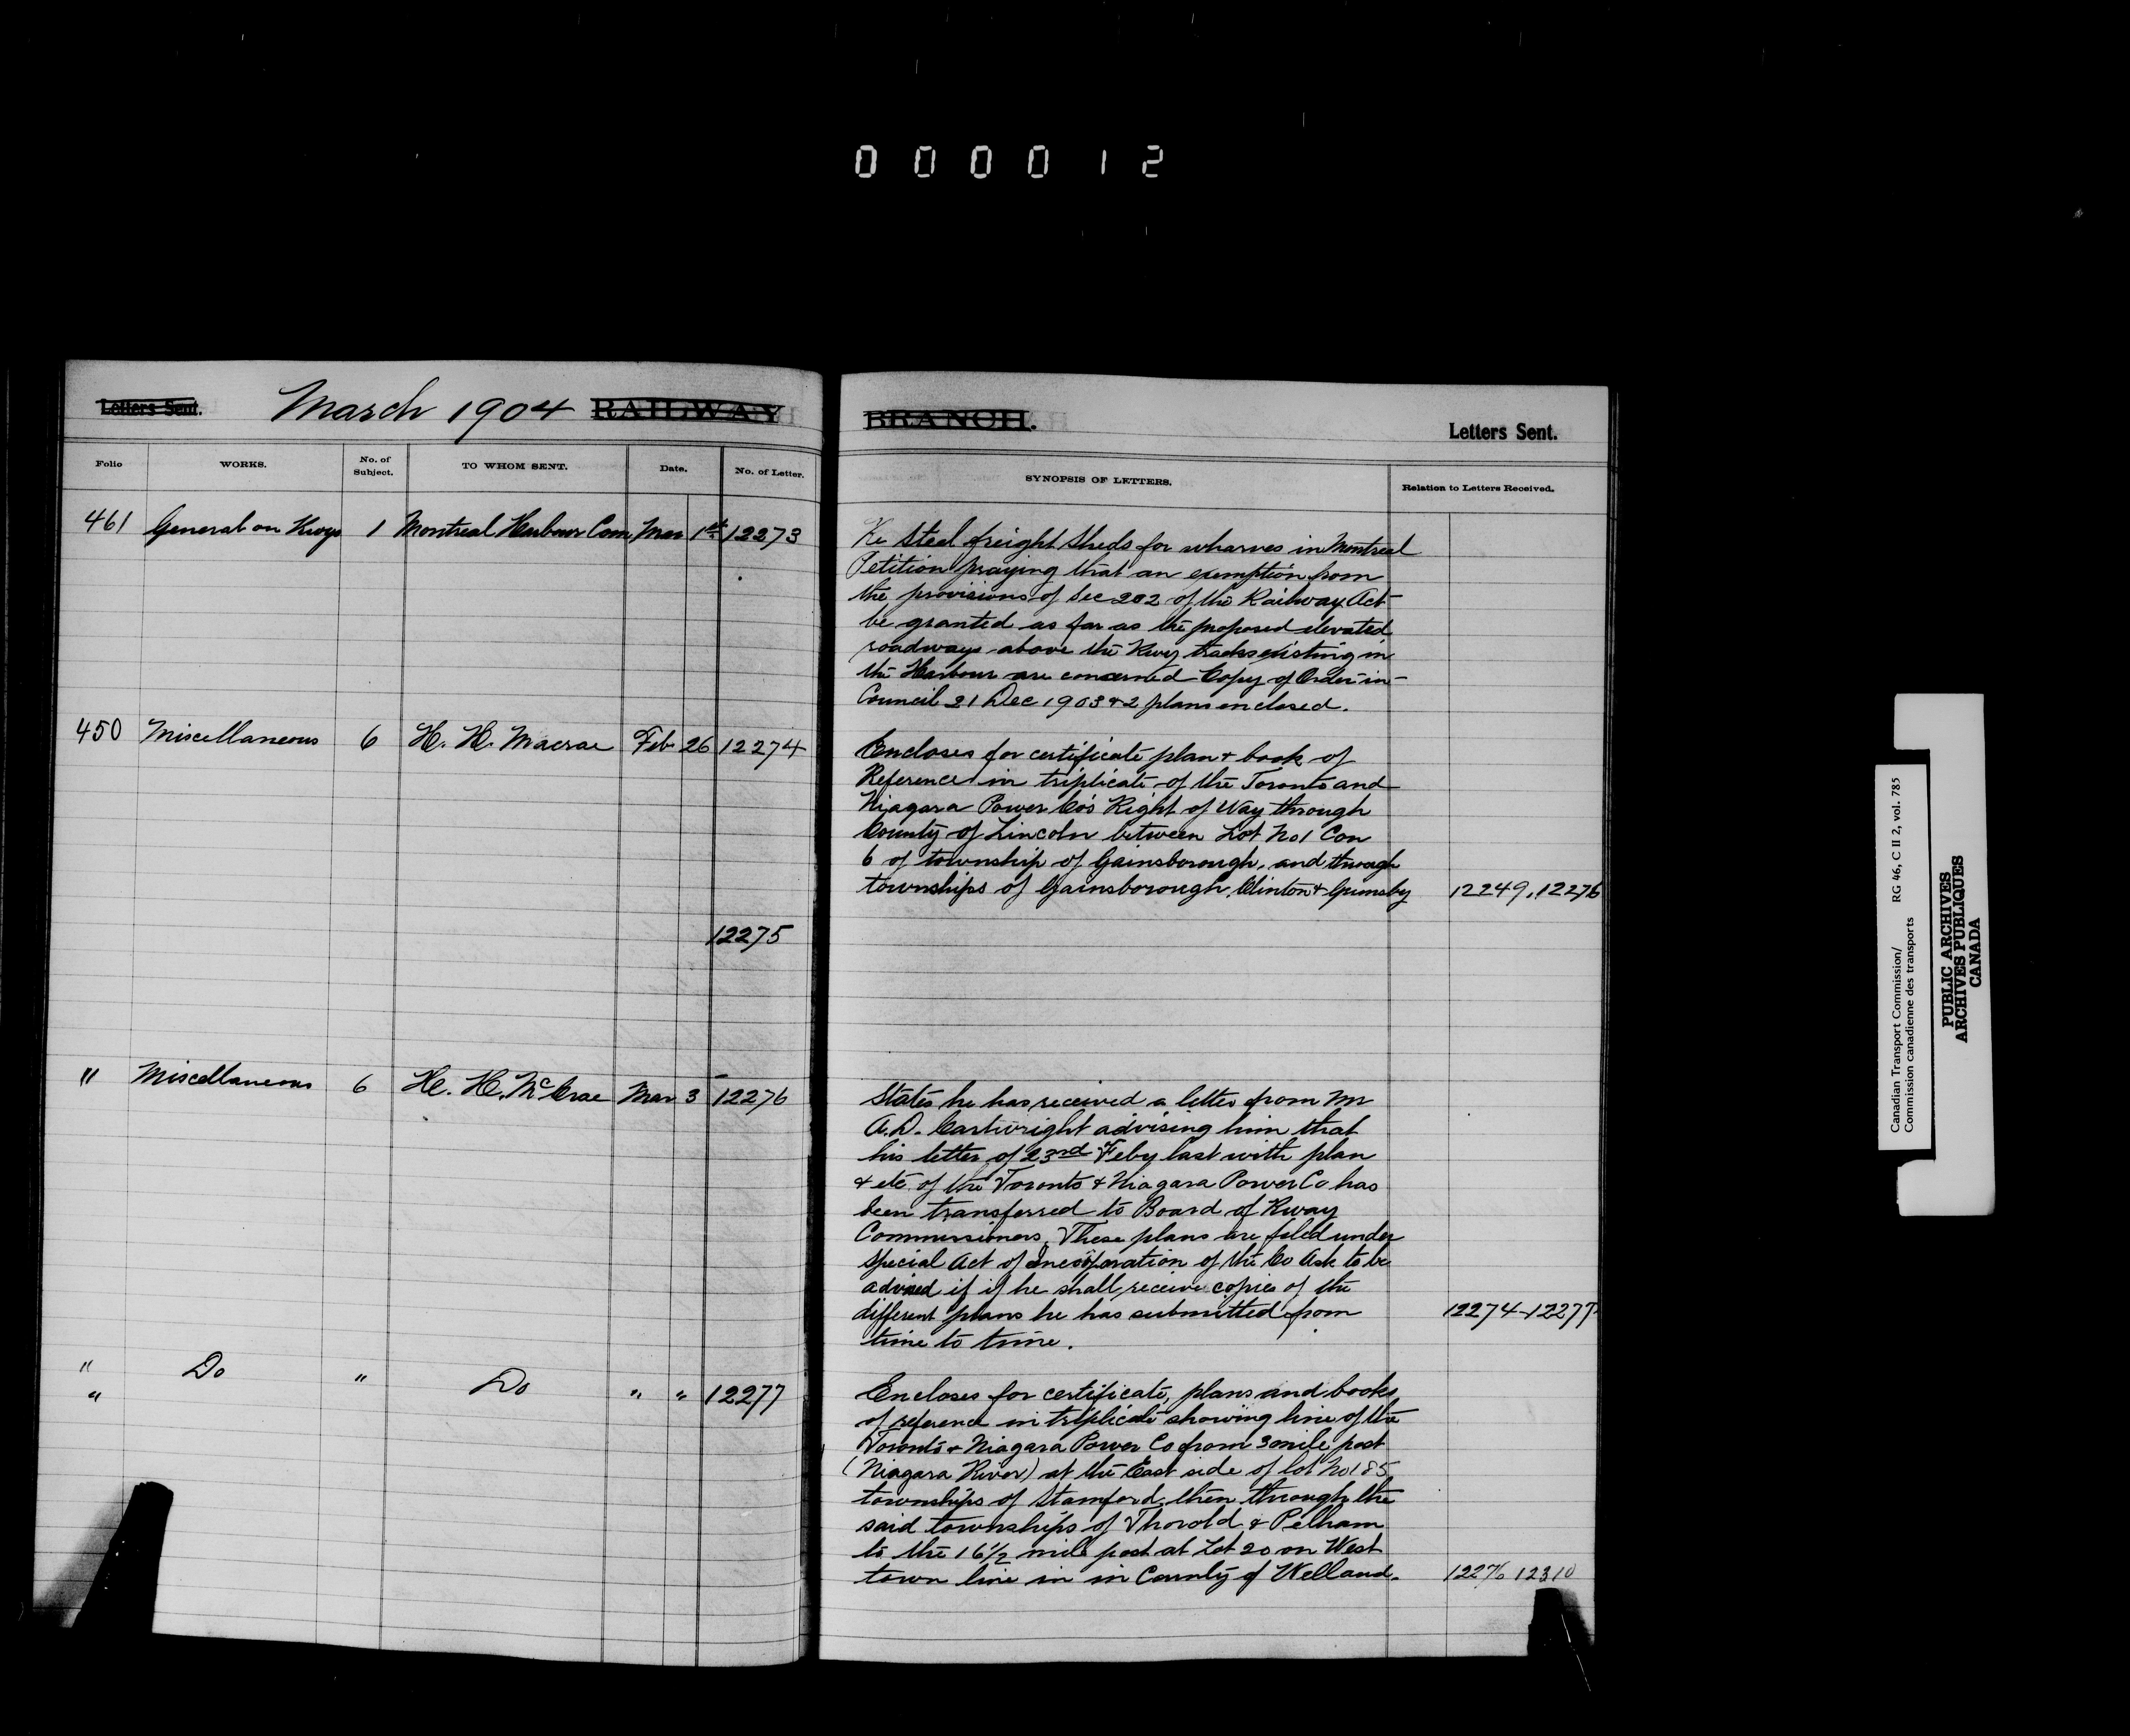 000012
Letters Sent. March 1904 RAILWAY BRANCH. Letters Sent.
Folio WORKS. No. of Subject. TO WHOM SENT. Date. No. of Letter. SYNOPSIS OF LETTERS. Relation to Letters Received.
461 General on Rwys 1 Montreal Harbour Com Mar 1st 12273
Re Steel freight Sheds for wharves in Montreal
Petition praying that an exemption from
the provisions of Sec 202 of the Railway Act
be granted as far as the proposed elevated
roadways above the Rwy tracks existing in
the Harbour are concerned Copy of Order-in-
Council 21 Dec 1903 & 2 plans enclosed.
450 Miscellaneous 6 H. H. Macrae Feb 26 12274
Encloses for certificate plan & book of
Reference in triplicate of the Toronto and
Niagara Power Co's Right of Way through
County of Lincoln between Lot No 1 Con
6 of township of Gainsborough, and through
townships of Gainsborough, Clinton & Grimsby 12249, 12276
12275
" Miscellaneous 6 H. H. McCrae Mar 3 12276
States he has received a letter from Mr
A.D. Cartwright advising him that
his letter of 23rd Feby last with plan
& etc. of the Toronto & Niagara Power Co has
been transferred to Board of Rway
Commissioners, These plans are filed under
special Act of incorporation of the Co Ask to be
advised if if he shall receive copies of the
different plans he has submitted from 12274-12277
time to time.
" Do " Do " " 12277
"
Encloses for certificate, plans and books
of reference in triplicate showing line of the
Toronto & Niagara Power Co from 3 mile post
(Niagara River) at the East side of lot No 185
townships of Stamford, then through the
said townships of Thorold & Pelham
to the 16 1/2 mile post at Lot 20 on West
town line in in County of Welland. 12276 12310
Canadian Transport Commission/ RG 46, C II 2, vol. 785
Commission canadienne des transports
PUBLIC ARCHIVES
ARCHIVES PUBLIQUES
CANADA